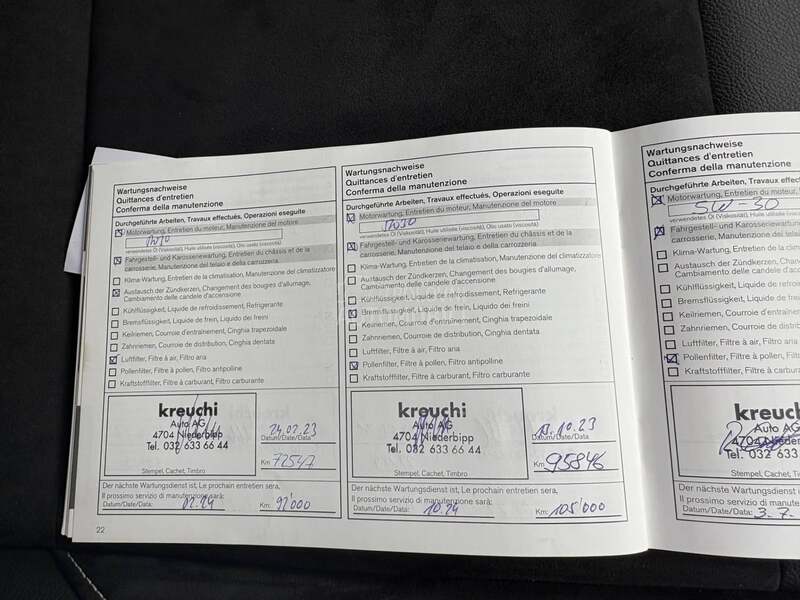 Wartungsnachweise
Quittances d'entretien
Conferma della manutenzione
Durchgeführte Arbeiten, Travaux effectués, Operazioni eseguite
Motorwartung, Entretien du moteur, Manutenzione del motore
verwendetes Öl (Viskosität), Huile utilisée (viscosité), Olio usato (viscosità)
Fahrgestell- und Karosseriewartung, Entretien du châssis et de la
carrosserie, Manutenzione del telaio e della carrozzeria
Klima-Wartung, Entretien de la climatisation, Manutenzione del climatizzatore
Austausch der Zündkerzen, Changement des bougies d'allumage,
Cambiamento delle candele d'accensione
Kühlflüssigkeit, Liquide de refroidissement, Refrigerante
Bremsflüssigkeit, Liquide de frein, Liquido dei freini
Keilriemen, Courroie d'entraînement, Cinghia trapezoidale
Zahnriemen, Courroie de distribution, Cinghia dentata
Luftfilter, Filtre à air, Filtro aria
Pollenfilter, Filtre à pollen, Filtro antipolline
Kraftstofffilter, Filtre à carburant, Filtro carburante
kreuchi
Auto AG
4704 Niederbipp
Tel. 032 633 66 44
Stempel, Cachet, Timbro
24.02.23
Datum/Date/Data
Km 72547
Der nächste Wartungsdienst ist, Le prochain entretien sera,
Il prossimo servizio di manutenzione sarà:
Datum/Date/Data: 02.24 Km: 92'000
22
Wartungsnachweise
Quittances d'entretien
Conferma della manutenzione
Durchgeführte Arbeiten, Travaux effectués, Operazioni eseguite
Motorwartung, Entretien du moteur, Manutenzione del motore
verwendetes Öl (Viskosität), Huile utilisée (viscosité), Olio usato (viscosità)
Fahrgestell- und Karosseriewartung, Entretien du châssis et de la
carrosserie, Manutenzione del telaio e della carrozzeria
Klima-Wartung, Entretien de la climatisation, Manutenzione del climatizzatore
Austausch der Zündkerzen, Changement des bougies d'allumage,
Cambiamento delle candele d'accensione
Kühlflüssigkeit, Liquide de refroidissement, Refrigerante
Bremsflüssigkeit, Liquide de frein, Liquido dei freini
Keilriemen, Courroie d'entraînement, Cinghia trapezoidale
Zahnriemen, Courroie de distribution, Cinghia dentata
Luftfilter, Filtre à air, Filtro aria
Pollenfilter, Filtre à pollen, Filtro antipolline
Kraftstofffilter, Filtre à carburant, Filtro carburante
kreuchi
Auto AG
4704 Niederbipp
Tel. 032 633 66 44
Stempel, Cachet, Timbro
10.23
Datum/Date/Data
Km 95846
Der nächste Wartungsdienst ist, Le prochain entretien sera,
Il prossimo servizio di manutenzione sarà:
Datum/Date/Data: 10.24 Km: 105'000
Wartungsnachweise
Quittances d'entretien
Conferma della manutenzione
Durchgeführte Arbeiten, Travaux effect
Motorwartung, Entretien du moteur,
5W-30
verwendetes Öl (Viskosität), Huile utilisée (visc
Fahrgestell- und Karosseriewartung
carrosserie, Manutenzione del telaio
Klima-Wartung, Entretien de la clim
Austausch der Zündkerzen, Change
Cambiamento delle candele d'accen
Kühlflüssigkeit, Liquide de refroidis
Bremsflüssigkeit, Liquide de frein,
Keilriemen, Courroie d'entraîneme
Zahnriemen, Courroie de distribu
Luftfilter, Filtre à air, Filtro aria
Pollenfilter, Filtre à pollen, Filtro
Kraftstofffilter, Filtre à carburan
kreuc
Auto AG
4704 Niederb
Tel. 032 633
Stempel, Cachet, Timbro
Der nächste Wartungsdienst ist,
Il prossimo servizio di manutenz
Datum/Date/Data: 3.7.